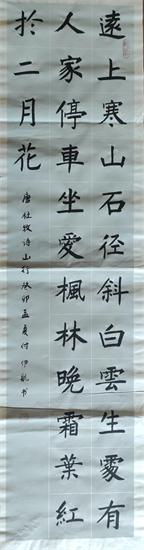 遠上寒山石径斜白雲生處有
人家停車坐愛楓林晚霜葉紅
於二月花
唐杜牧诗山行癸卯孟夏付伊航书